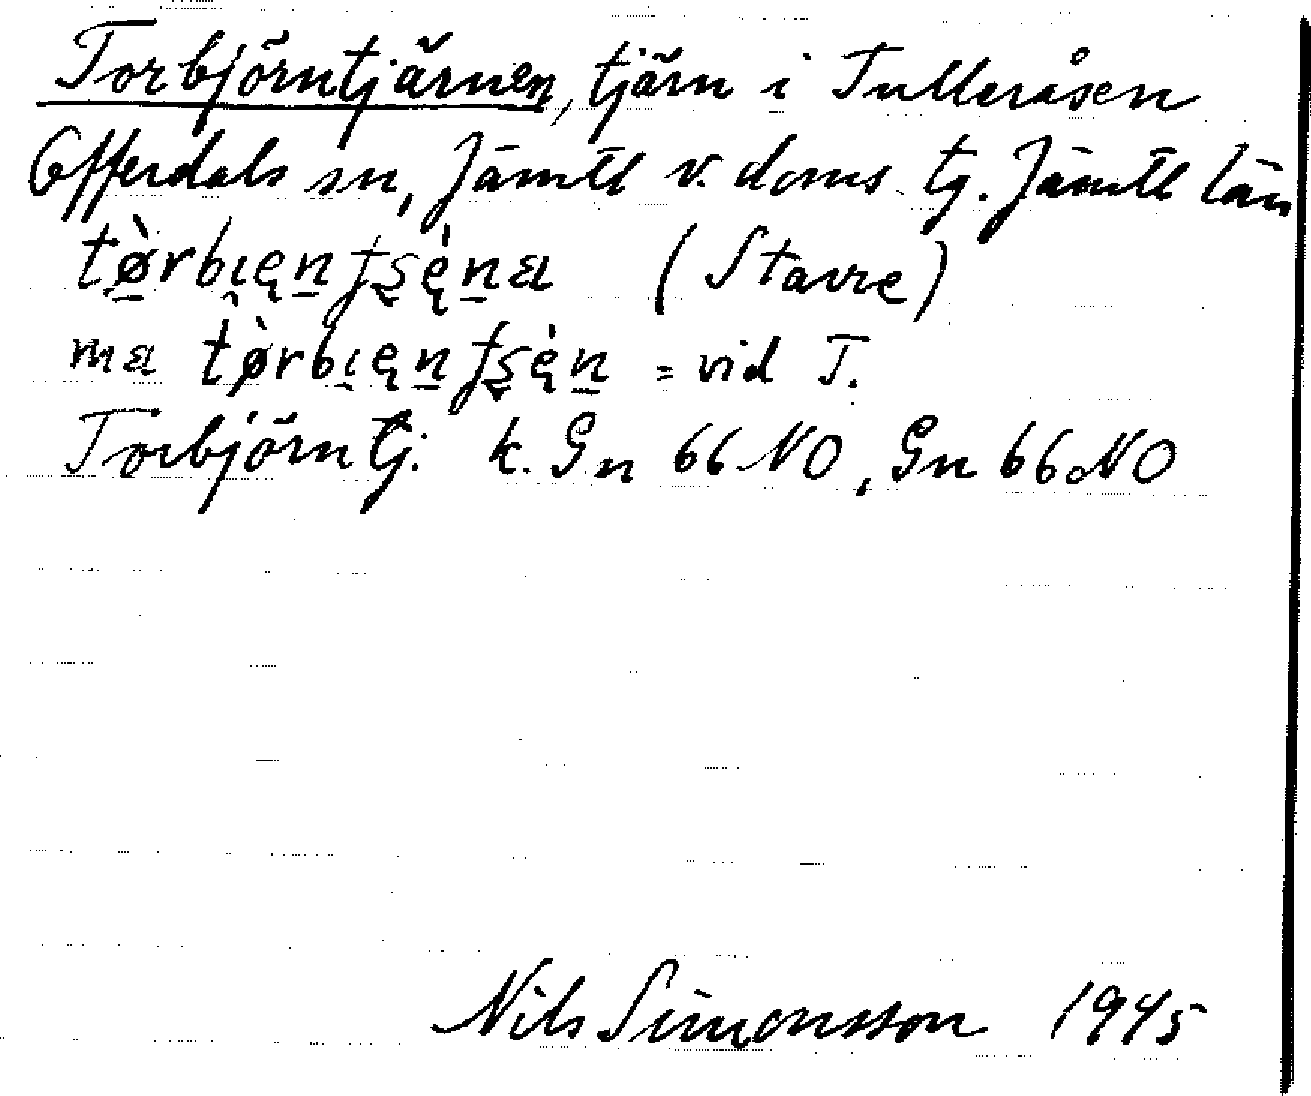 Torbjörntjärnen, tjärn i Tulleråsen
Offerdals sn, Jämtl v. doms. tg. Jämtl län
(Stavre)
ma = vid T.
Torbjörntj. k. Gn 66 NO, Gn 66 NO
Nils Simonsson 1945